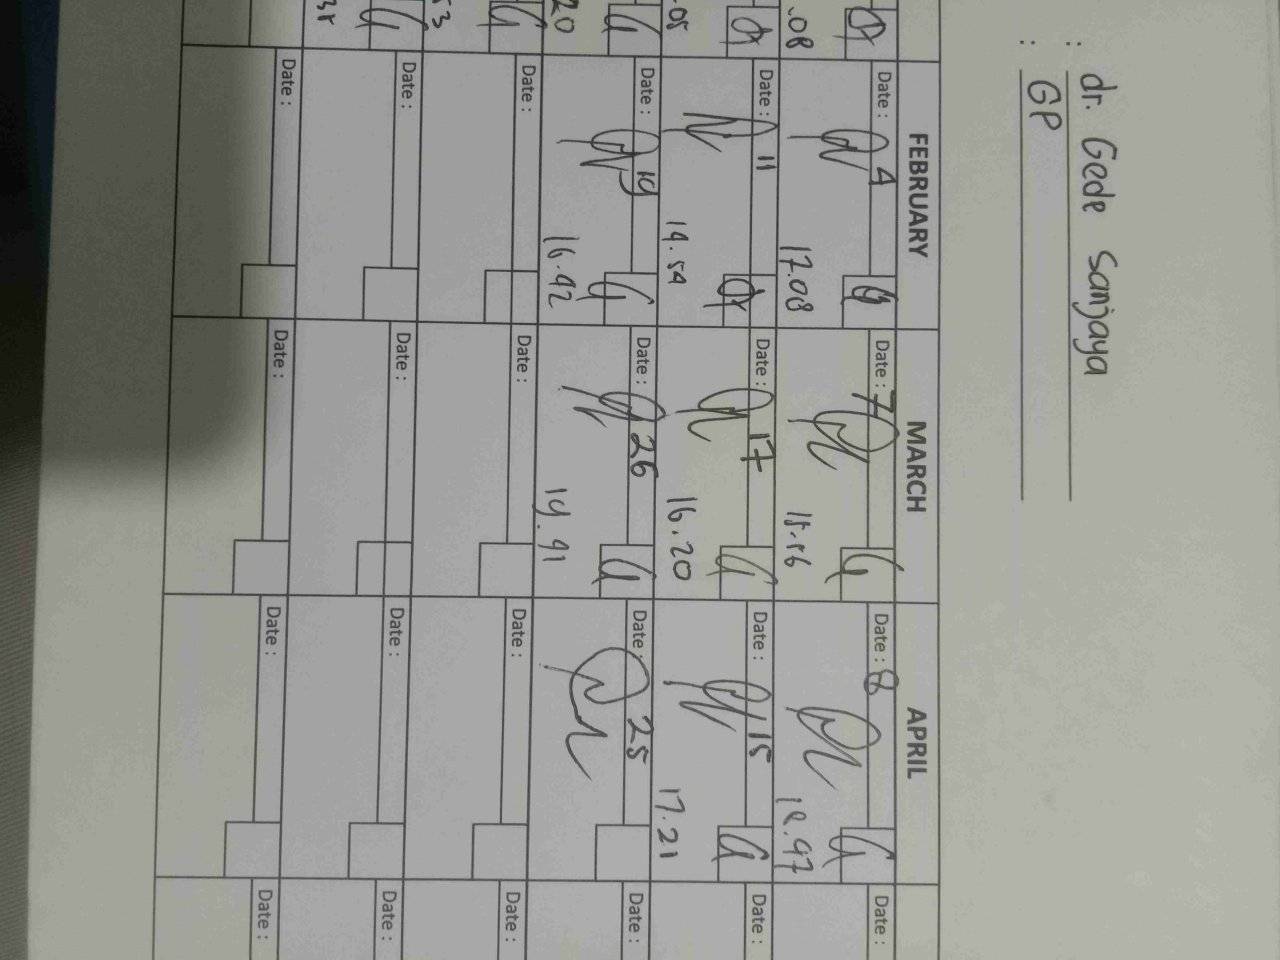 : dr. Gede Sanjaya
: GP
FEBRUARY MARCH APRIL
.08
Date : 4 Date : 7 Date : 8 Date :
17.08
.05
Date : 11 Date : 17 Date : 15 Date :
14.54 16.20 17.21
20
Date : 19 Date : 26 Date : 25 Date :
16.42 19.41
53
Date : Date : Date : Date :
Date : Date : Date : Date :
Date : Date : Date : Date :